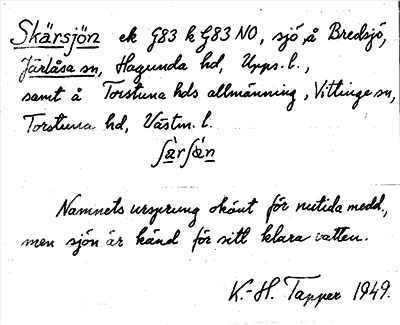 Skärsjön ek G83 k G83 NO, sjö, å Bredsjö,
Järlåsa sn, Hagunda hd, Upps. l.,
samt å Torstuna hds allmänning, Vittinge sn,
Torstuna hd, Västm. l.
ʃàrʃǡn
Namnets ursprung okänt för nutida medd.,
men sjön är känd för sitt klara vatten.
K.-H. Tapper 1949.